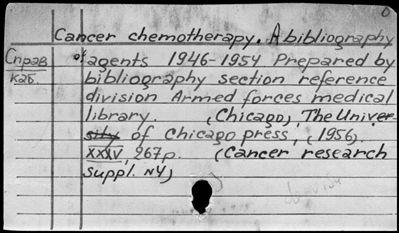 Cancer chemotherapy. A bibliography
Справ
каб.
of agents 1946-1954 Prepared by
bibliography section reference
division Armed forces medical
library. (Chicago), The Univer-
sity of Chicago press, (1956).
XXXIV, 267p. (Cancer research
suppl. №4)